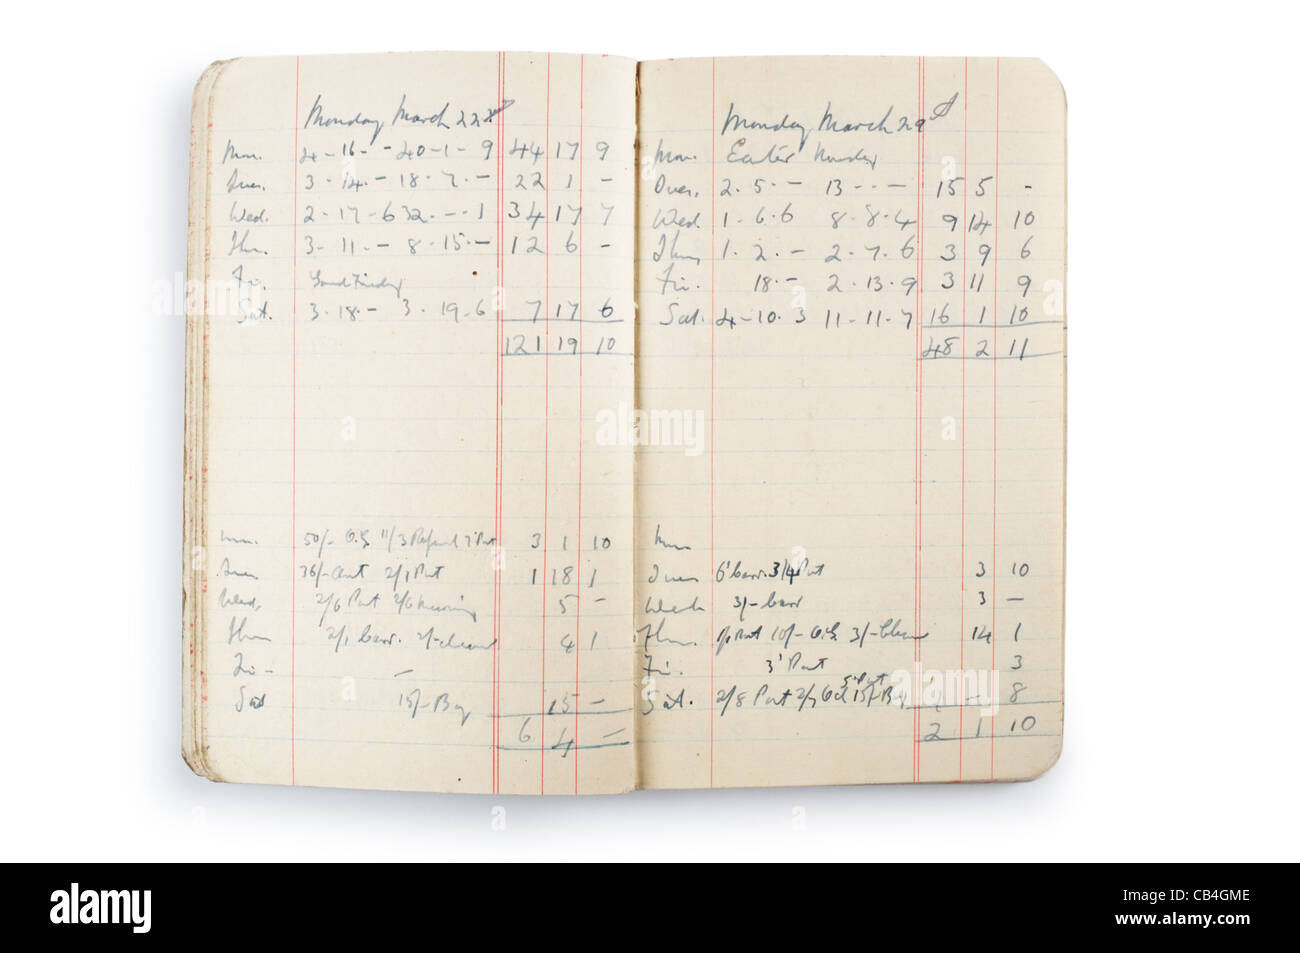 Monday March 22
Mon. 4-16-- 40-1-9 44 17 9
Tues. 3-14-- 18.7.- 22 1 -
Wed. 2-17-6 32.--1 34 17 7
Thu. 3-11-- 8-15-- 12 6 -
Fri. Good Friday
Sat. 3-18-- 3.19-6 7 17 6
121 19 10
Mon. 50/- 11/3 Refund 7' Post 3 1 10
Tues 36/- 2/1 Post 1 18 1
Wed. 2/6 Post 2/6 5 -
Thu 2/1 barr. 2/- 4 1
Fri - -
Sat 15/- Boy 15 -
6 4 -
Monday March 29
Mon. Easter Monday
Tues. 2.5.- 13--- 15 5 -
Wed. 1-6.6 8-8.4 9 14 10
Thu 1.2.- 2-7.6 3 9 6
Fri. 18.- 2.13.9 3 11 9
Sat. 4-10.3 11-11-7 16 1 10
48 2 11
Mon
Tues 6' barr. 3/4 Post 3 10
Wed 3/- barr 3 -
Thu. Post 10/- 3/- 14 1
Fri. 3' Post 3
5' Post
Sat. 2/8 Post 2/7 Oil 15/- Boy 1 - 8
2 1 10
alamy
a
alamy
Image ID: CB4GME
www.alamy.com